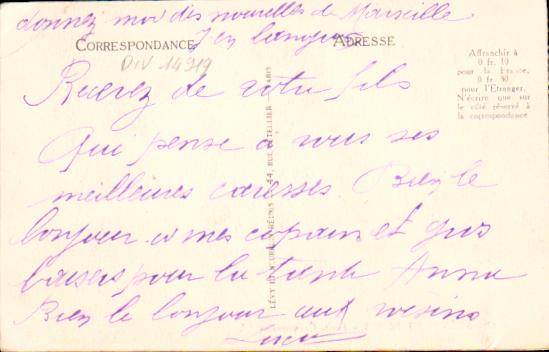 donnez moi des nouvelles de Marseille
CORRESPONDANCE
ADRESSE
J en
DIV 14919
Affranchir à
0 fr. 10
pour la France,
0 fr. 30
pour l'Etranger.
N'écrire que sur
le côté réservé à
la correspondance
Recevez de votre fils
Qui pense a vous ses
meilleures caresses. Bien le
bonjour a mes copains et gros
baisers pour la tante Anna
Bien le bonjour aux voisins
LÉVY ET NEURDEIN RÉUNIS, 44, RUE LETELLIER, PARIS